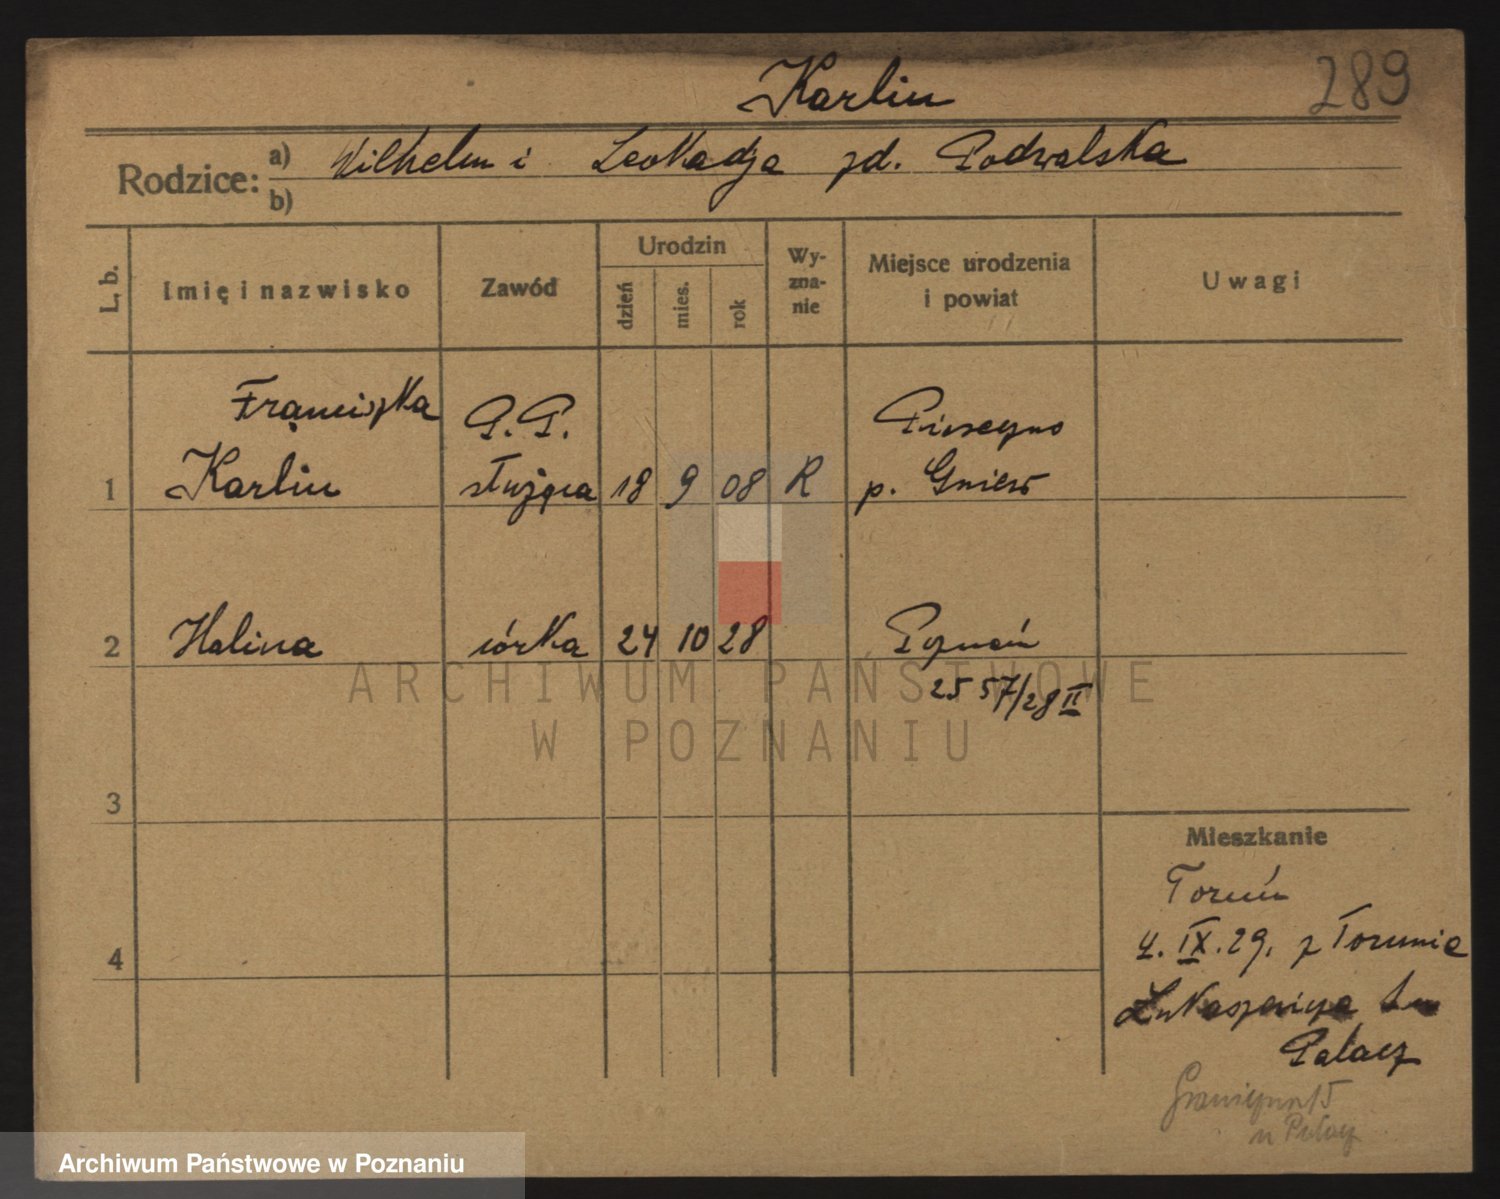 Karlin
289
Rodzice:
a) Wilhelm i Leokadja zd. Podwalska
b)
L. b.
Imię i nazwisko
Zawód
Urodzin
dzień
mies.
rok
Wy-
zna-
nie
Miejsce urodzenia
i powiat
Uwagi
Franciszka P. P. Pieseczno
1 Karlin służąca 18 9 08 R p. Gniew
2 Halina córka 24 10 28 Poznań
2557/28 II
3
4
Mieszkanie
Toruń
4. IX. 29. z Torunia
Łukaszewicza
Palacz
Graniczna 15
u Palacz
ARCHIWUM PAŃSTWOWE
W POZNANIU
Archiwum Państwowe w Poznaniu